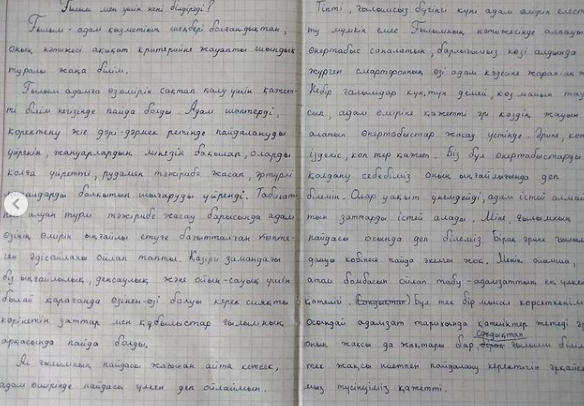 Ғылым мен үшін нені білдіреді?
Ғылым - адам қызметінің шеңбері болғандықтан,
оның нәтижесі ақиқат критерийіне жауапты шындық
туралы жаңа білім.
Ғылым адамға өз өмірін сақтап қалу үшін қажет-
ті білім негізінде пайда болды. Адам шөптерді,
қоректену және дәрі-дәрмек ретінде пайдалануды
үйренген, жануарлардың мінезін бақылап, оларды
қолға үйретті, рудамен тәжірибе жасап, әртүрлі
балқытып шығаруды үйренді. Табиғат
алуан түрлі тәжірибе жасау барысында адам
өзінің өмірін ыңғайлы етуге бағытталған көпте-
ген әдістерді ойлап тапты. Қазіргі замандағы
біз ыңғайлылық, денсаулық және ойын-сауық үшін
былай қарағанда өзінен-өзі болуы керек сияқты
көрінетін заттар мен құбылыстар ғылымның
арқасында пайда болды.
Ал ғылымның пайдасы жағынан айта кетсек,
адам өмірінде пайдасы үлкен деп ойлаймын.
Тіпті, ғылымсыз бүгінгі күні адам өмірін елесте-
ту мүмкін емес. Ғылымның нәтижесінде алғашқы
өнертабыс саналатын, барлығымыз көзі алдында
жүрген смартфонның өзі адам кәдесіне жараған.
Небір ғалымдар күн, түн демей, көз майын тауы-
сып, адам өміріне қажетті әрі көздің жауын
алатын өнертабыстар жасау үстінде. Әрине, көп
ізденіс, көп тер қажет. Біз бұл өнертабыстарды
қолдану себебіміз оның ыңғайлығында деп
білемін. Олар уақыт үнемдейді, адам істей алмай-
тын заттарды істей алады. Міне, ғылымның
пайдасы осында деп білеміз. Бірақ әрине ғылым-
дағы көбінесе пайда әкелгені жоқ. Менің ойымша,
атом бомбасын ойлап табу - адамзаттың ең үлкен
қателігі. Бұл тек бір мысал көрсеткенім.
Осындай адамзат тарихында қателіктер жетеді әр
оның жақсы да жақтары бар сондықтан ғылыми білім
тек жақсы ниетпен пайдалану керектігін әрқайсы-
мыз түсінуіміз қажетті.